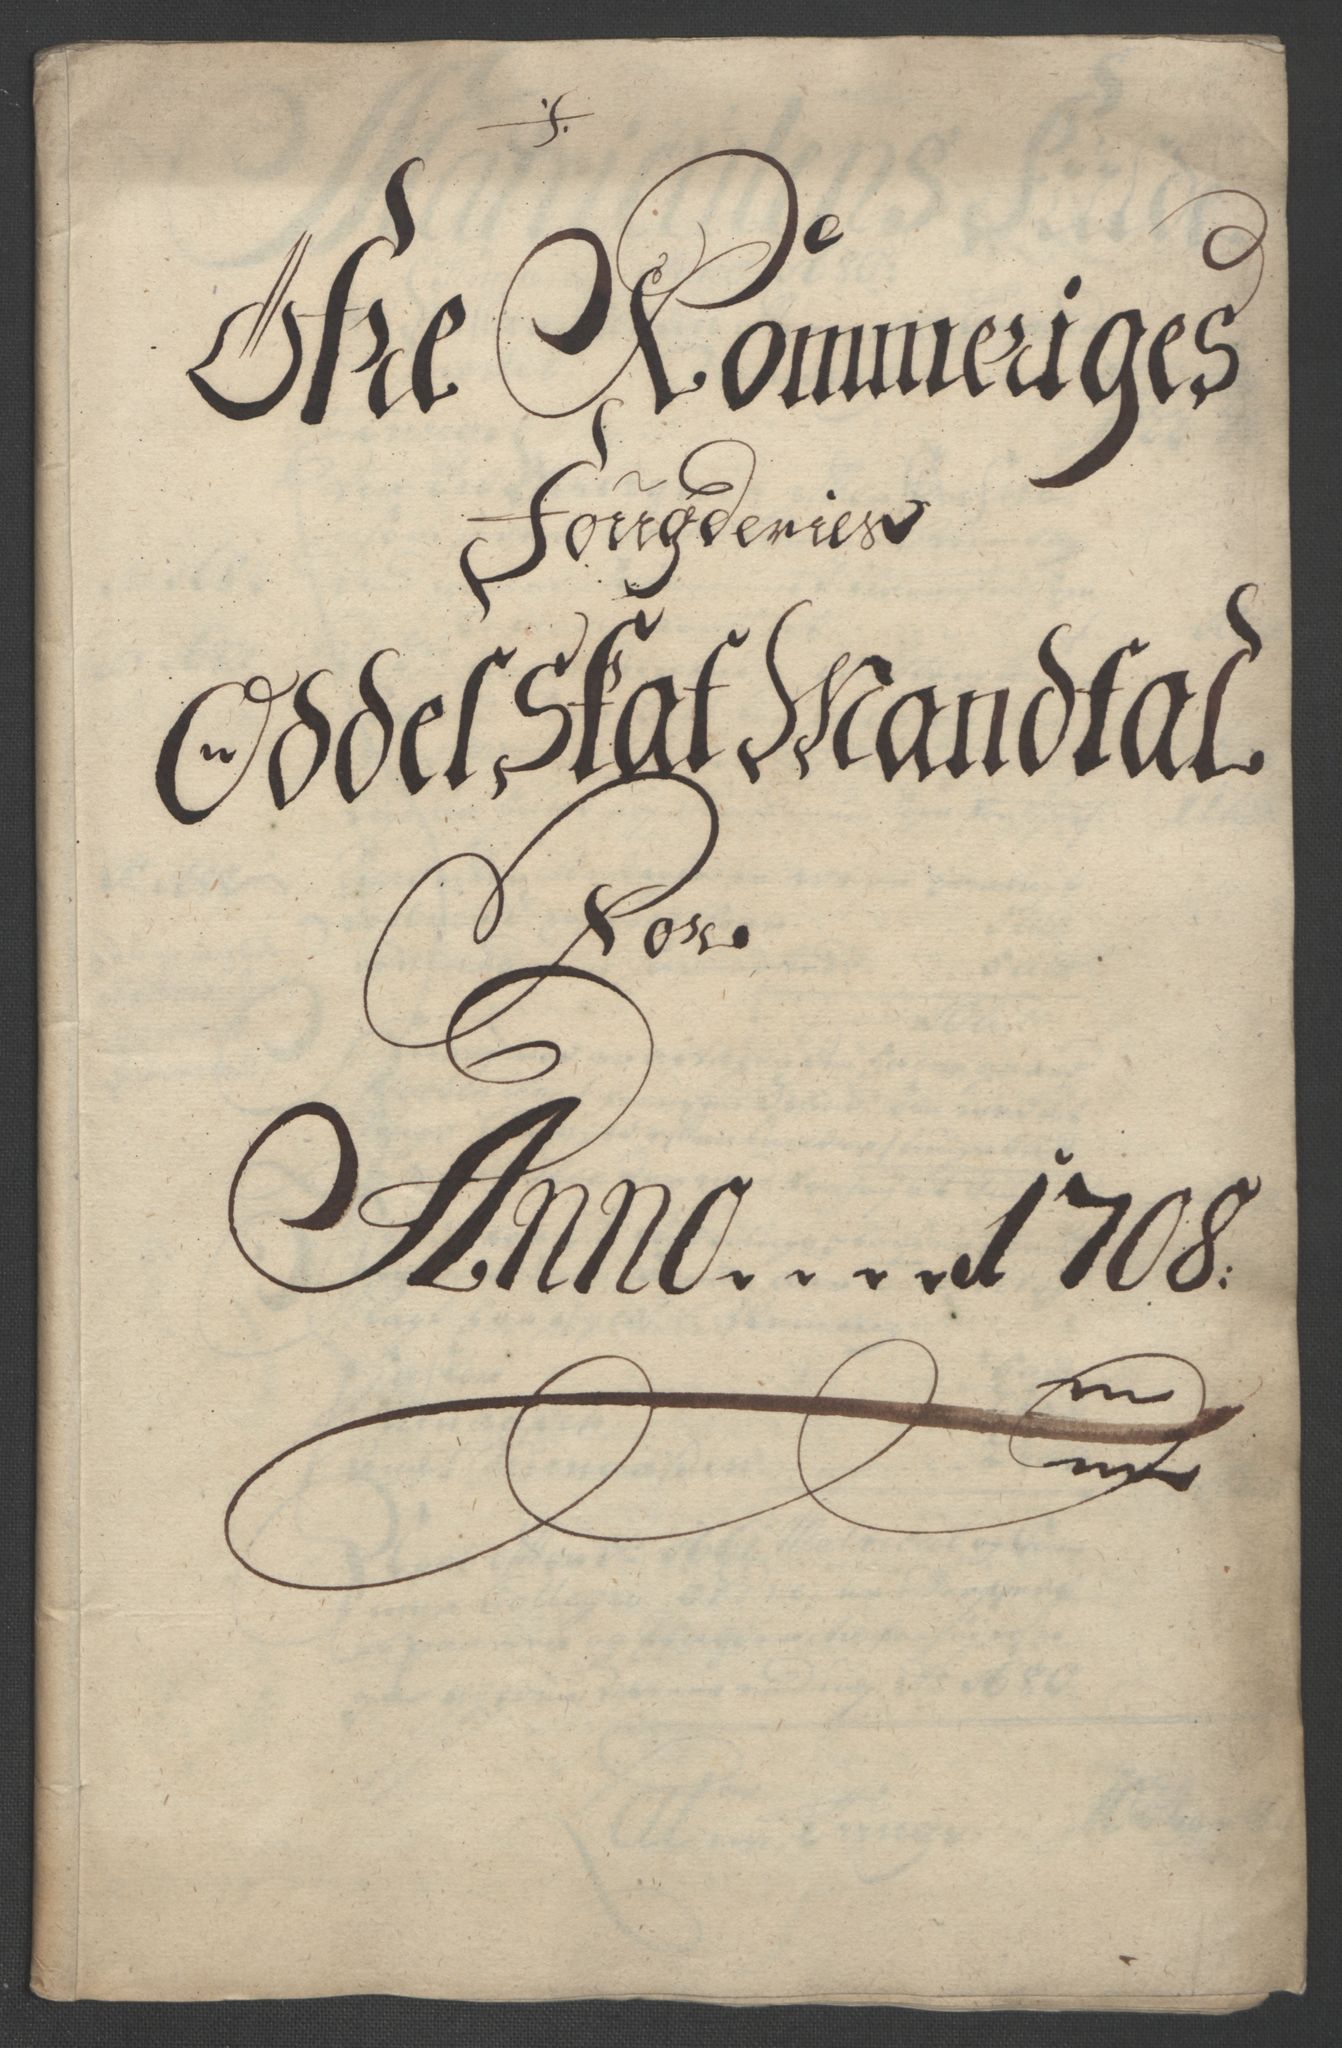 Öfre Rommeriges
Fougderies
Oddel Skat Mandtal
For
Anno....1708: